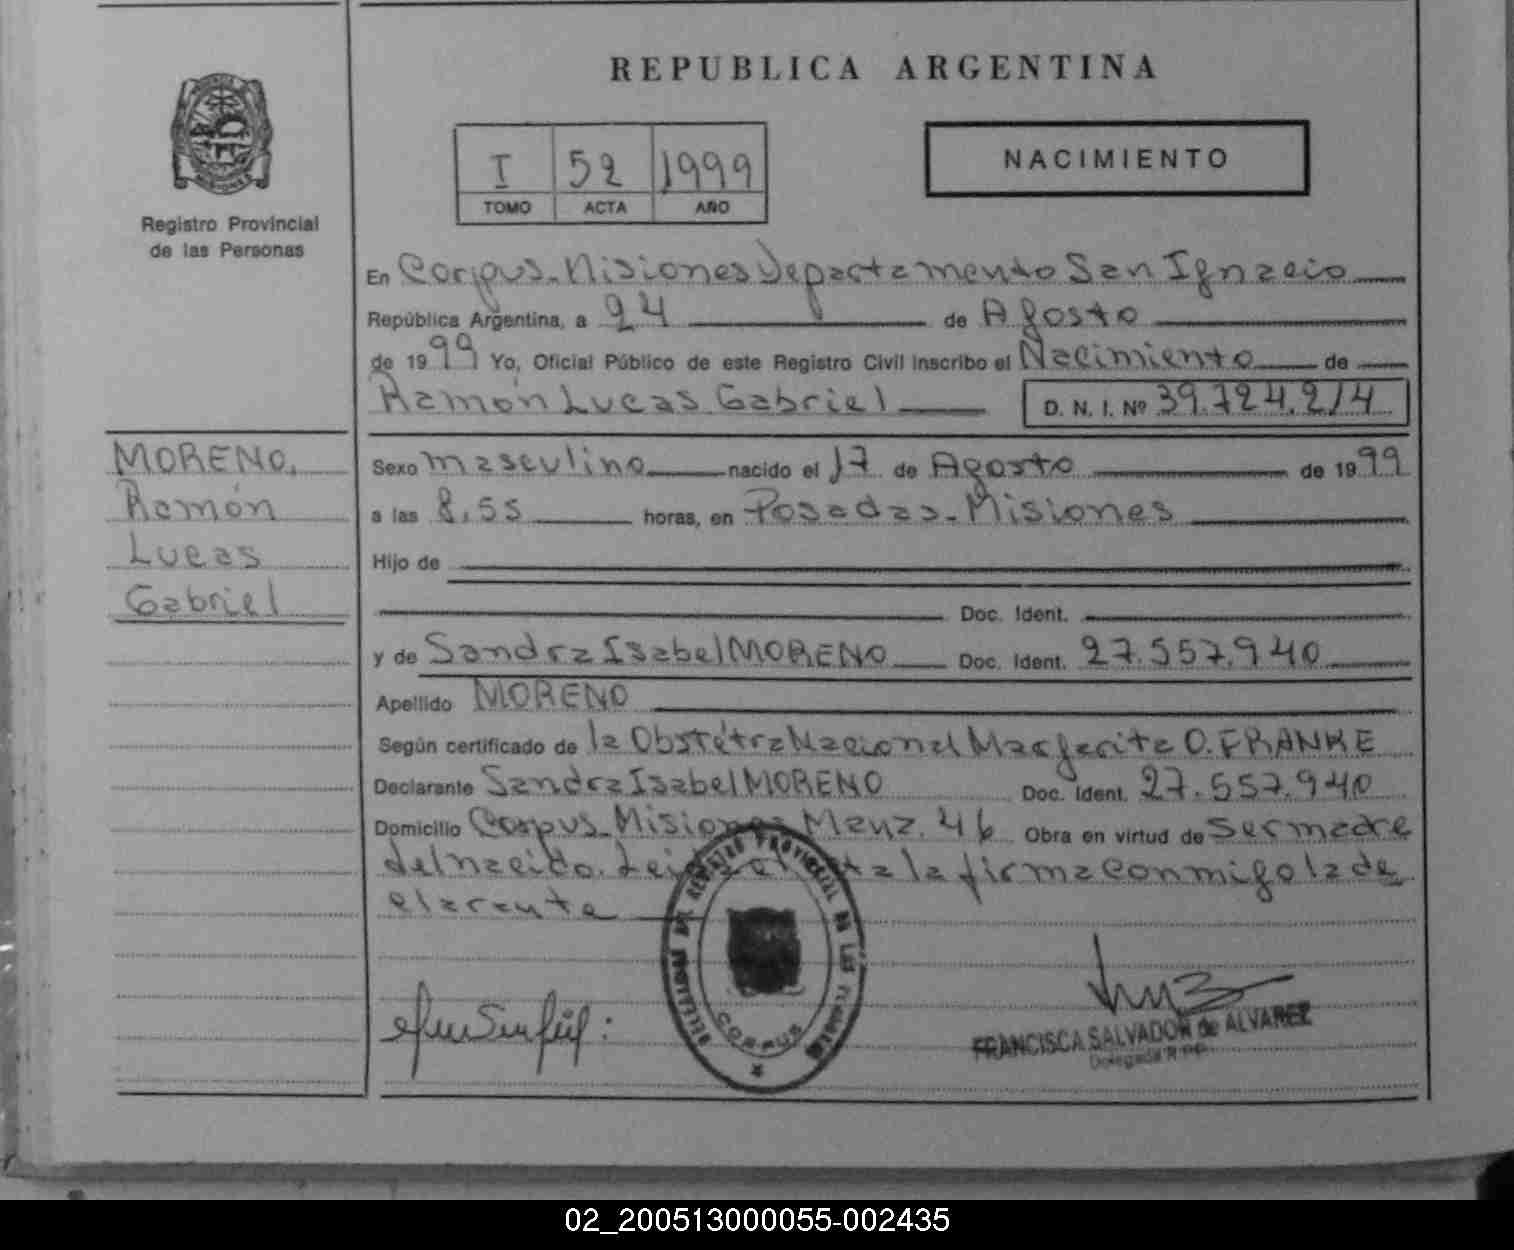 REPUBLICA ARGENTINA
I 52 1999
TOMO ACTA AÑO
NACIMIENTO
MISIONES
Registro Provincial
de las Personas
En Corpus-Misiones Departamento San Ignacio
República Argentina, a 24 de Agosto
de 1999 Yo, Oficial Público de este Registro Civil inscribo el Nacimiento de
Ramón Lucas Gabriel D. N. I. Nº 39.724.214
MORENO,
Ramón
Lucas
Gabriel
Sexo masculino nacido el 17 de Agosto de 1999
a las 8,55 horas, en Posadas-Misiones
Hijo de
Doc. Ident.
y de Sandra Isabel MORENO Doc. Ident. 27.557.940
Apellido MORENO
Según certificado de la Obstétra Nacional Margarita O. FRANKE
Declarante Sandra Isabel MORENO Doc. Ident. 27.557.940
Domicilio Corpus-Misiones Manz. 46 Obra en virtud de ser madre
del nacido. Leida el acta la firma conmigo la de
clarante
REGISTRO PROVINCIAL DE LAS
CORPUS
FRANCISCA SALVADOR de ALVAREZ
Delegada R.P.P.
02_200513000055-002435